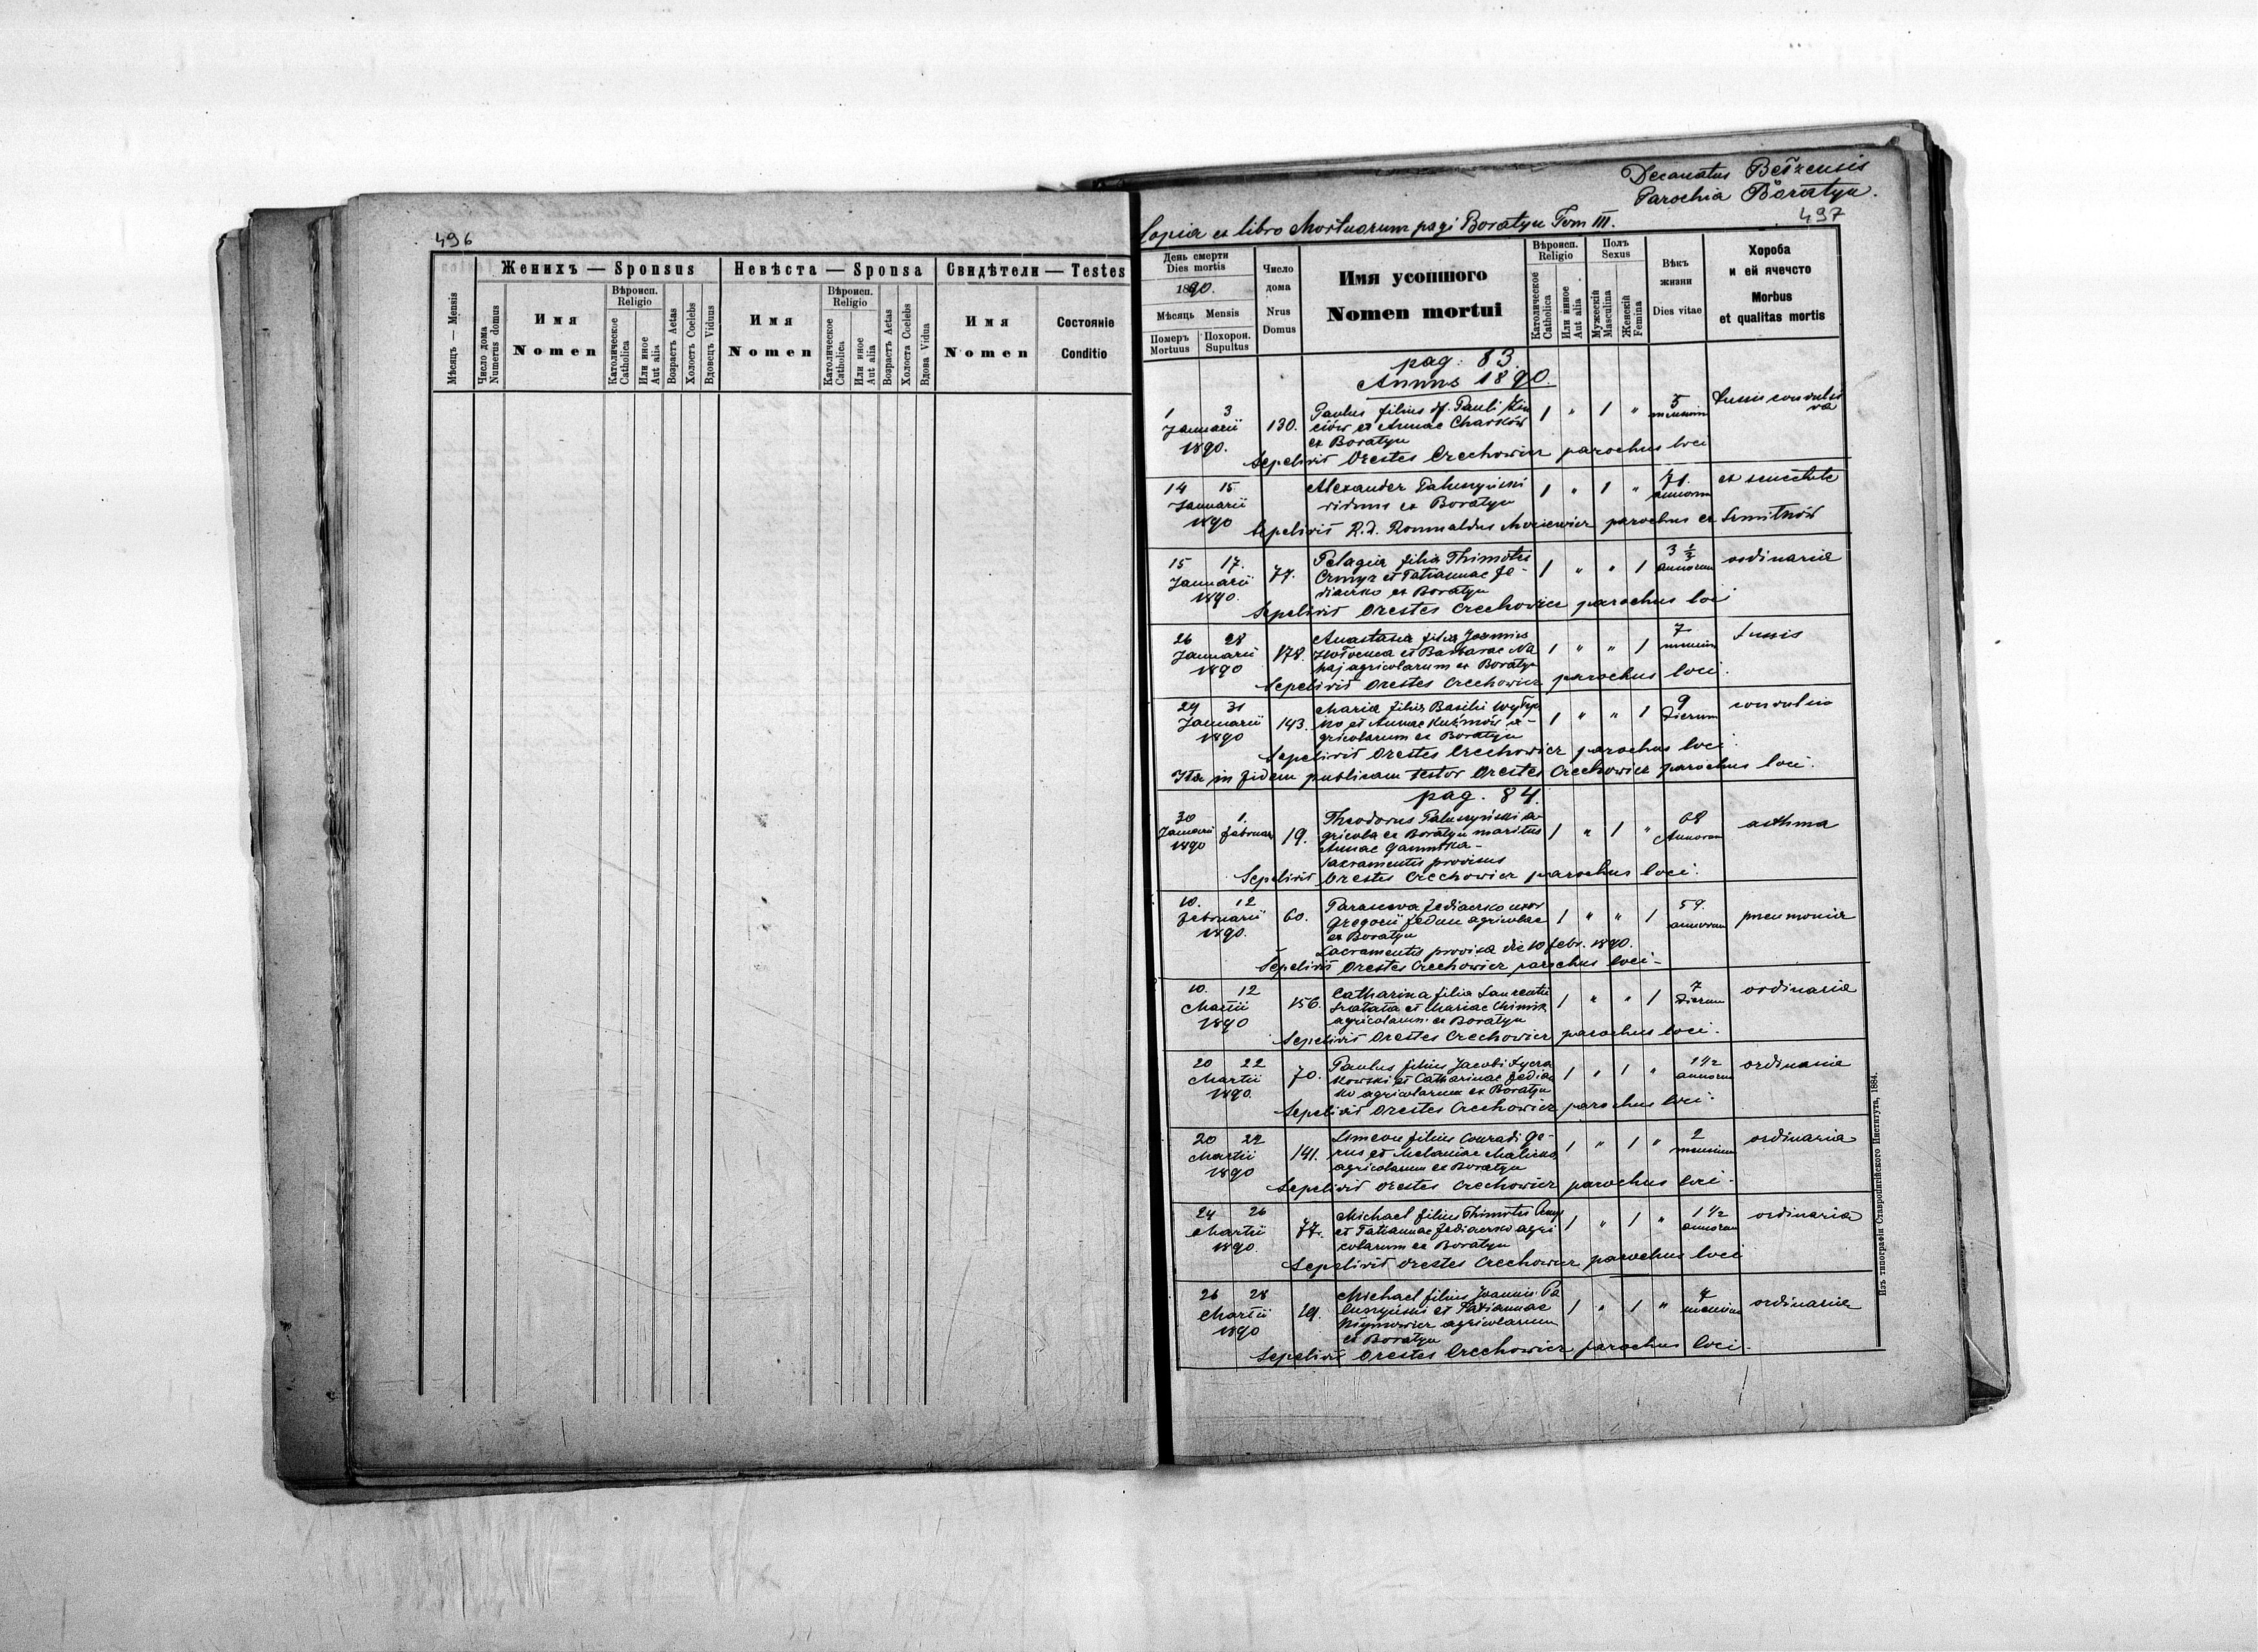 496
Женихъ — Sponsus
Невѣста — Sponsa
Свидѣтели — Testes
Мѣсяцъ — Mensis
Число дома
Numerus domus
Имя
Nomen
Вѣроисп.
Religio
Католическое
Catholica
Или иное
Aut alia
Возрасть Aetas
Холость Coelebs
Вдовецъ Viduus
Имя
Nomen
Вѣроисп.
Religio
Католическое
Catholica
Или иное
Aut alia
Возрасть Aetas
Холоста Coelebs
Вдова Vidua
Имя
Nomen
Состояніе
Conditio
Decanatus Bełzensis
Parochia Boratyn.
497
Copia ex libro Mortuorum pagi Boratyn Tom III.
День смерти
Dies mortis
1890.
Мѣсяць Mensis
Померъ
Mortuus
Похорон.
Sepultus
Число
дома
Nrus
Domus
Имя усопшого
Nomen mortui
Вѣроисп.
Religio
Католическое
Catholica
Или инное
Aut alia
Полъ
Sexus
Мужескій
Masculina
Женскій
Femina
Вѣкъ
жизни
Dies vitae
Хороба
и ей ячечсто
Morbus
et qualitas mortis
pag. 83.
Annus 1890.
1 3 Paulus filius df. Pauli 1 " 1 " 5 Tussis convulsi
Januarii 130. et Annae Charków mensium va
1890. ex Boratyn
Sepelivit Orestes Crechowicz parochus loci
14 15 Alexander Paluszyński 1 " 1 " 71. ex senectute
Januarii viduus ex Boratyn annorum
1890 Sepelivit R. d. Romualdus parochus ex
15 17. Pelagia filia Thimotei 1 " " 1 3 ½ ordinaria
Januarii 77. et Tatiannae Fe- annorum
1890. diaczko ex Boratyn
Sepelivit Orestes Crechowicz parochus loci
26 28 Anastasia filia Joannis 1 " " 1 7 tussis
Januarii 178. et Barbarae Na mensium
1890 paj agricolarum ex Boratyn
Sepelivit Orestes Crechowicz parochus loci.
29 31 Maria filia Basilii 1 " " 1 9 convulsio
Januarii 143. et Annae Kuźmów a- dierum
1890 gricolarum ex Boratyn
Sepelivit Orestes Crechowicz parochus loci.
Ita in fidem publicam testor Orestes Crechowicz parochus loci.
pag. 84.
30 1. Theodorus Paluszyński a- 1 " 1 " 68 asthma
Januarii Februar 19. gricola ex Boratyn maritus Annorum
1890 Annae
Sacramentis provisus
Sepelivit Orestes Crechowicz parochus loci.
10. 12 Parasceva Fediaczko uxor 1 " " 1 59. pneumonia
Februarii 60. Gregorii Fedun agricolae annorum
1890. ex Boratyn
Sacramentis provisa die 10 febr. 1890.
Sepelivit Orestes Crechowicz parochus loci-
10. 12 Catharina filia Laurentii 1 " " 1 7 ordinaria
Martii 156. et Mariae Chimik dierum
1890 agricolarum ex Boratyn
Sepelivit Orestes Crechowicz parochus loci.
20 22 Paulus filius Jacobi Łycza 1 " 1 " 1 ½ ordinaria
Martii 70. kowski et Catharinae Fediacz annorum
1890. ko agricolarum ex Boratyn
Sepelivit Orestes Crechowicz parochus loci.
20 22 Simeon filius Conradi Ge- 1 " 1 " 2 ordinaria
Martii 141. rus et Melaniae mensium
1890 agricolarum ex Boratyn
Sepelivit Orestes Crechowicz parochus loci.
24 26 Michael filius Thimotei 1 " 1 " 1 ½ ordinaria
Martii 77. et Tatiannae Fediaczko agri annorum
1890. colarum ex Boratyn
Sepelivit Orestes Crechowicz parochus loci
26 28 Michael filius Joannis Pa 1 " 1 " 4 ordinaria
Martii 29. luszyński et Tatiannae mensium
1890 Klymowicz agricolarum
ex Boratyn
Sepelivit Orestes Crechowicz parochus loci.
Изъ типографіи Ставропигійского Института, 1884.